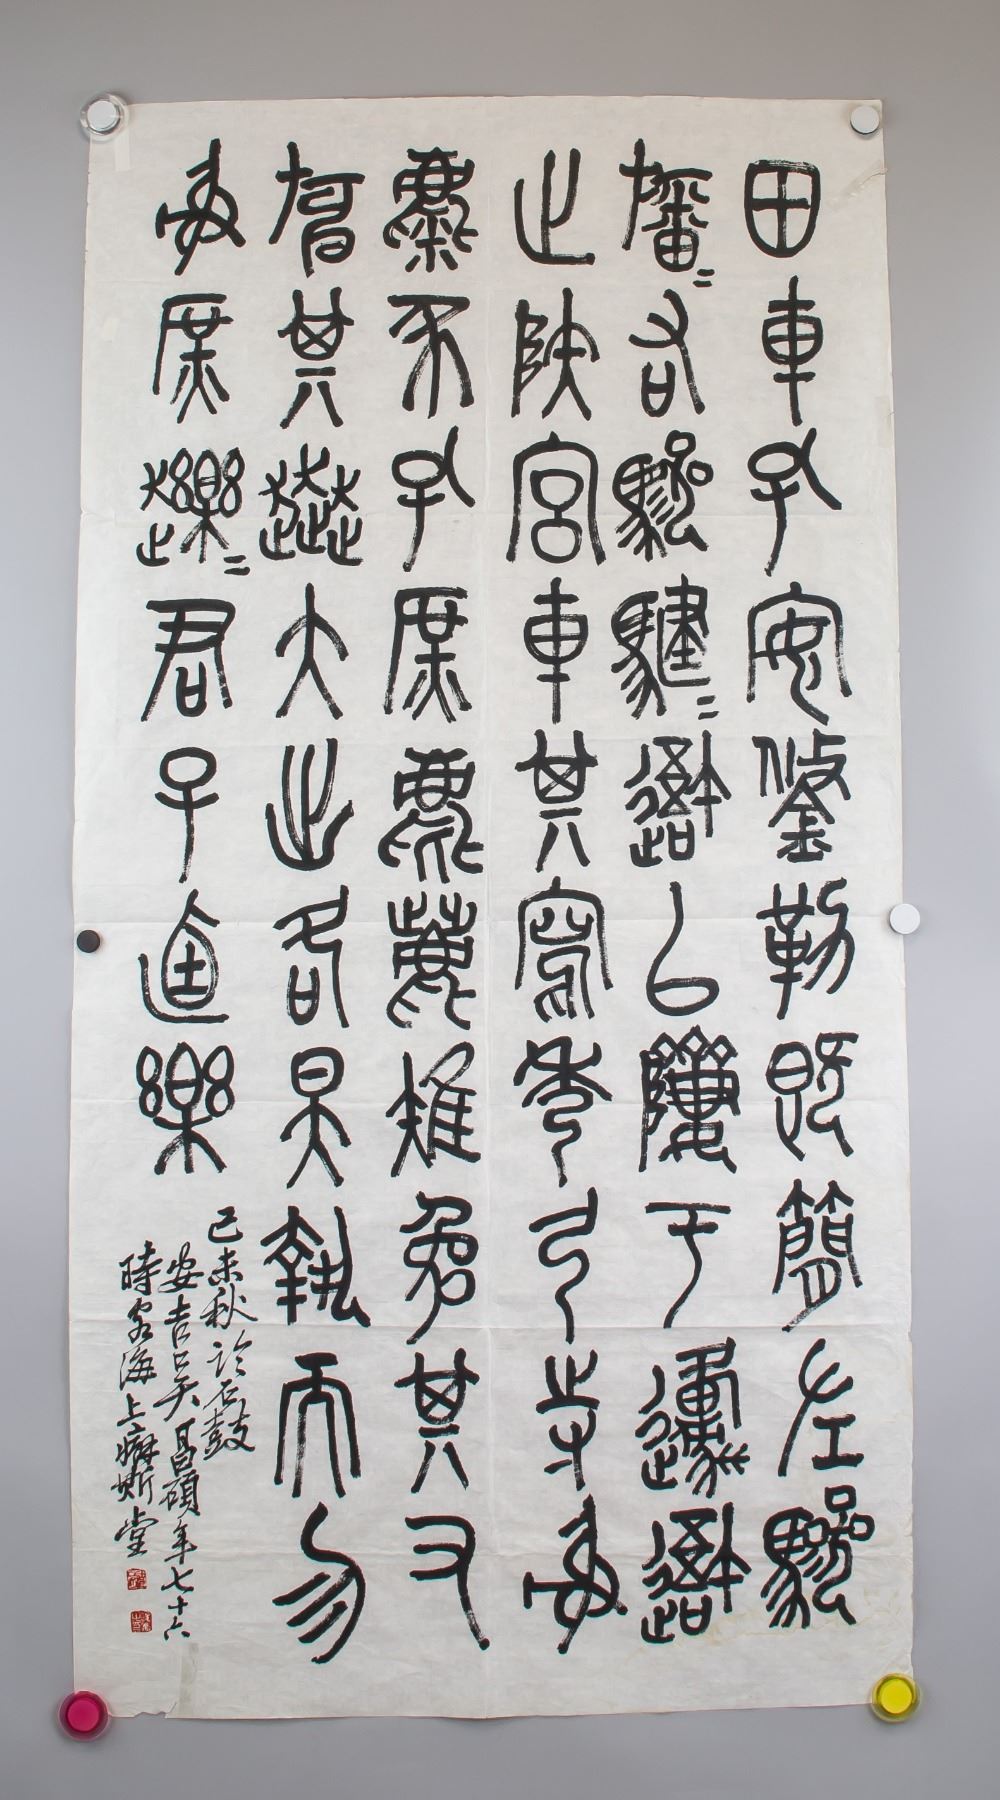 田車孔安鋚勒既簡左驂
旛〻右驂騝〻䢒㠯隮于邍䢒
止陕宮車其寫秀弓寺射
麋豕孔庶麀鹿雉兔其又
旃其大出各昊執而勿
射庶〻君子逌樂
己未秋詅石鼓
安吉吳昌碩年七十六
時客海上癖斯堂